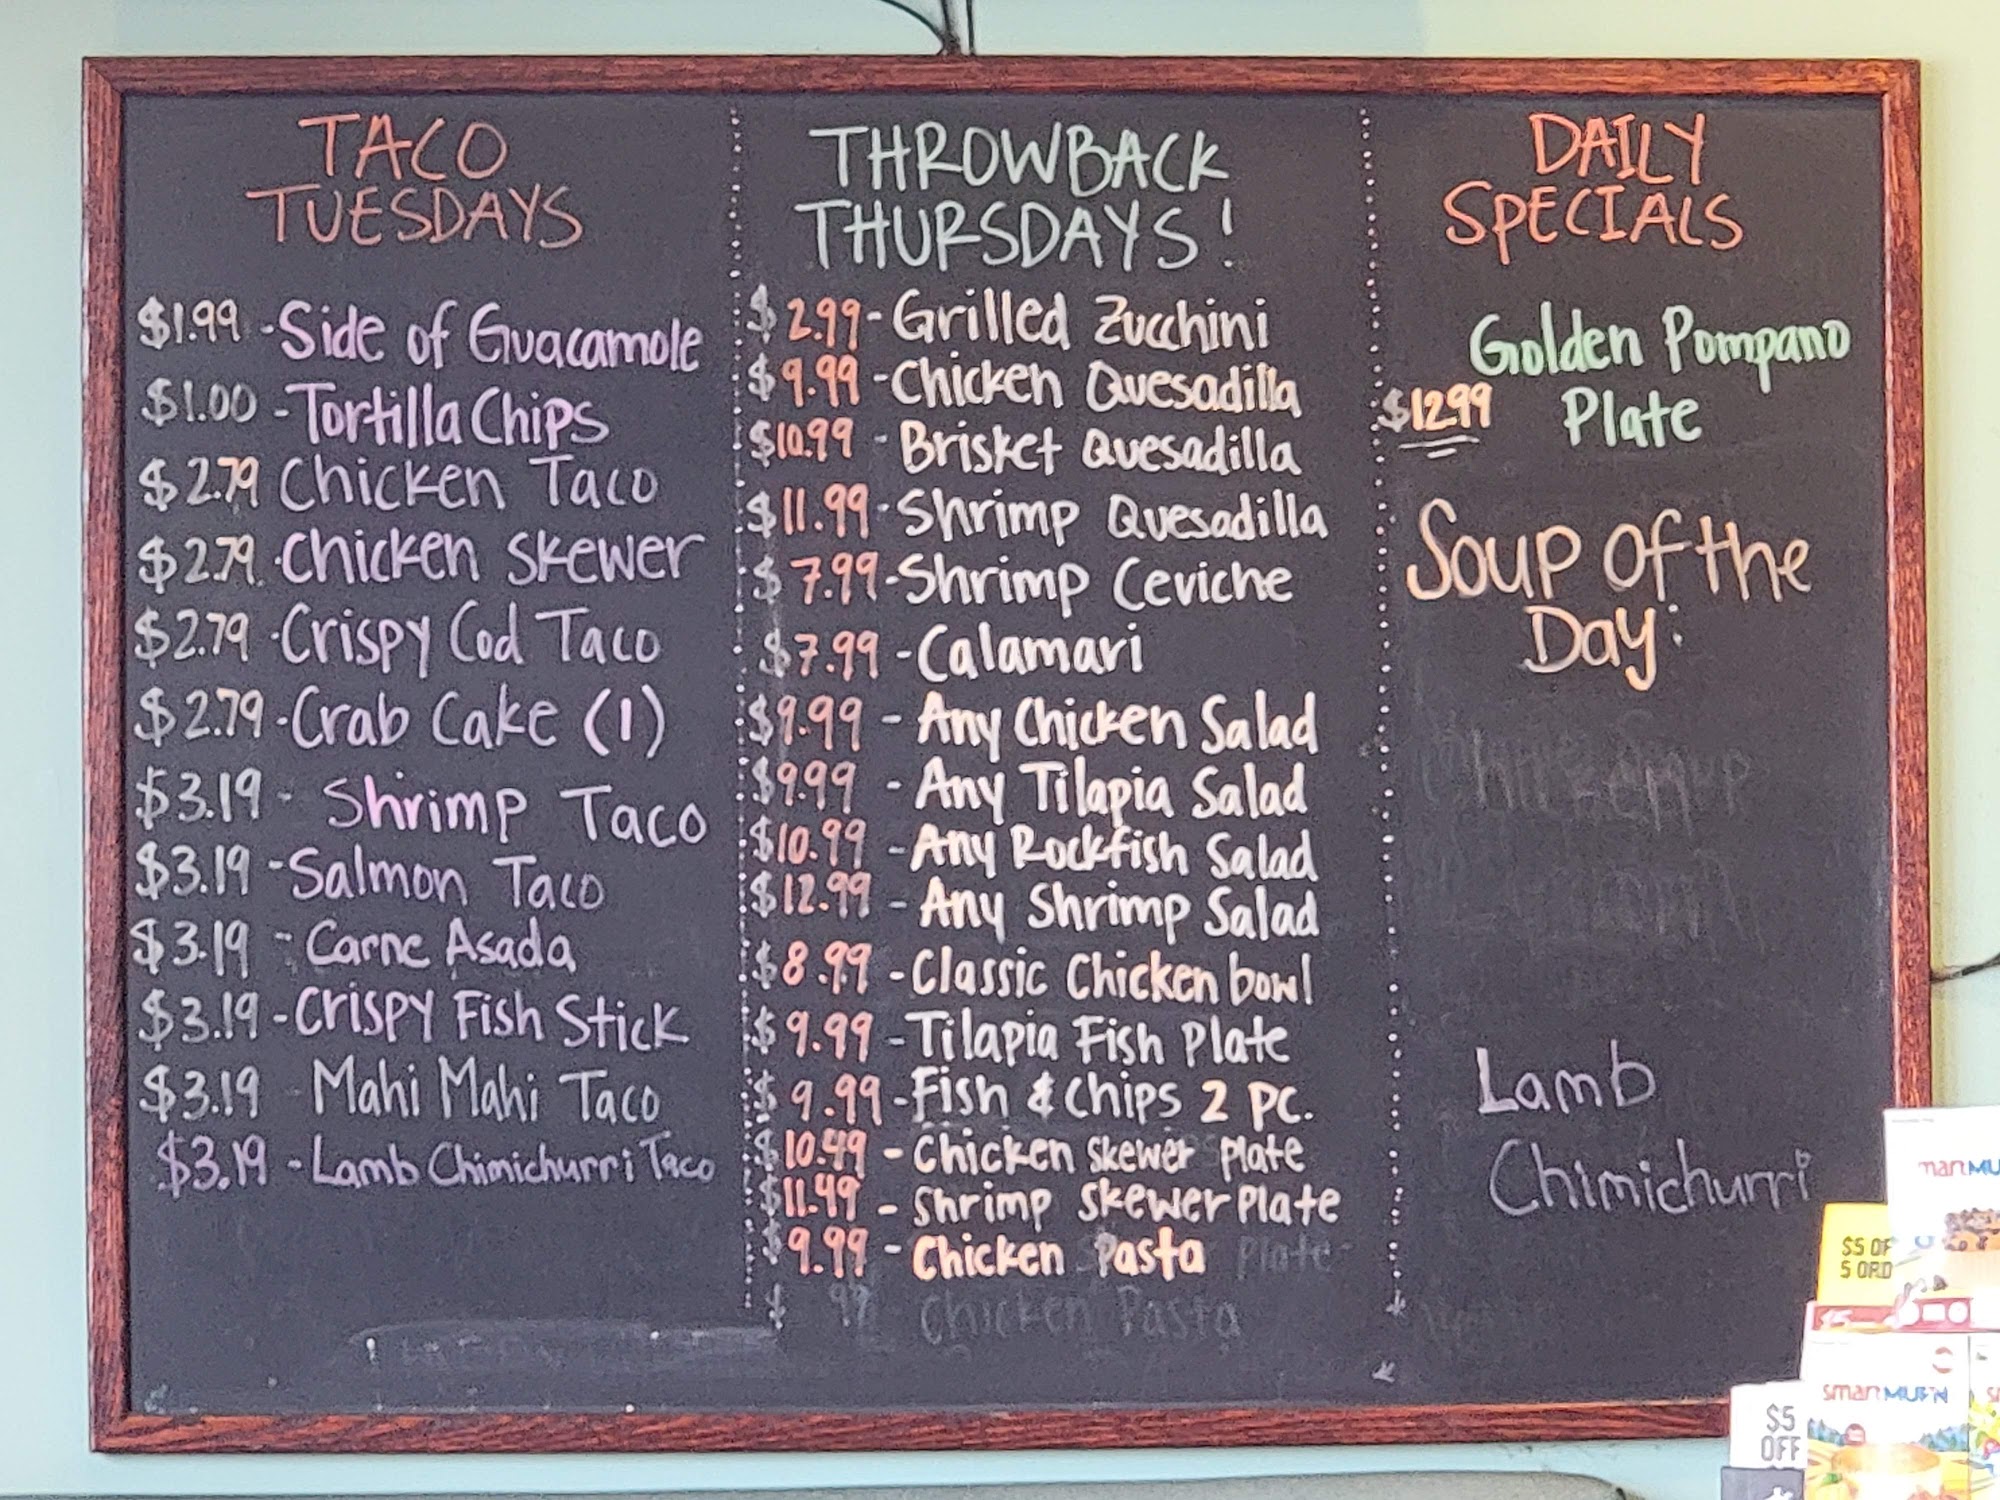 TACO
TUESDAYS
$1.99 - Side of Guacamole
$1.00 - Tortilla Chips
$2.79 Chicken Taco
$2.79 - Chicken Skewer
$2.79 - Crispy Cod Taco
$2.79 - Crab Cake (1)
$3.19 - Shrimp Taco
$3.19 - Salmon Taco
$3.19 - Carne Asada
$3.19 - Crispy Fish Stick
$3.19 - Mahi Mahi Taco
$3.19 - Lamb Chimichurri Taco
THROWBACK
THURSDAYS!
$2.99 - Grilled Zucchini
$9.99 - Chicken Quesadilla
$10.99 - Brisket Quesadilla
$11.99 - Shrimp Quesadilla
$7.99 - Shrimp Ceviche
$7.99 - Calamari
$9.99 - Any Chicken Salad
$9.99 - Any Tilapia Salad
$10.99 - Any Rockfish Salad
$12.99 - Any Shrimp Salad
$8.99 - Classic Chicken bowl
$9.99 - Tilapia Fish Plate
$9.99 - Fish & Chips 2 pc.
$10.49 - Chicken Skewer Plate
$11.49 - Shrimp Skewer Plate
$9.99 - Chicken Pasta Plate
Chicken Pasta
DAILY
SPECIALS
Golden Pompano
$12.99 Plate
Soup of the
Day:
Lamb
Chimichurri
$5 OF
5 ORD
smart MUF'N
$5
OFF